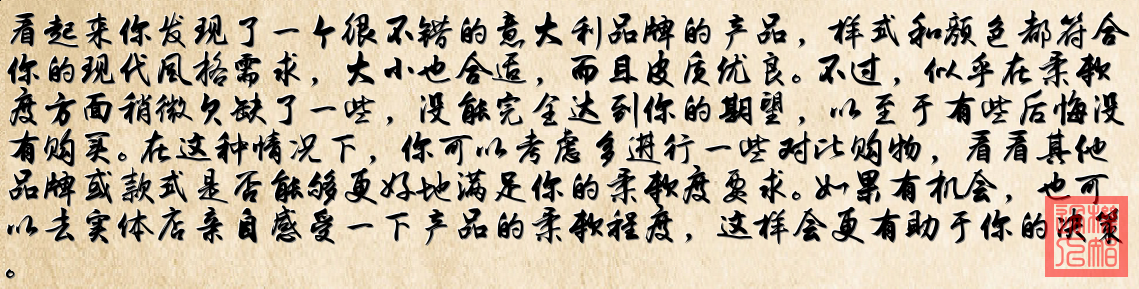 看起来你发现了一个很不错的意大利品牌的产品，样式和颜色都符合
你的现代风格需求，大小也合适，而且皮质优良。不过，似乎在柔软
度方面稍微欠缺了一些，没能完全达到你的期望，以至于有些后悔没
有购买。在这种情况下，你可以考虑多进行一些对比购物，看看其他
品牌或款式是否能够更好地满足你的柔软度要求。如果有机会，也可
以去实体店亲自感受一下产品的柔软程度，这样会更有助于你的决策
。